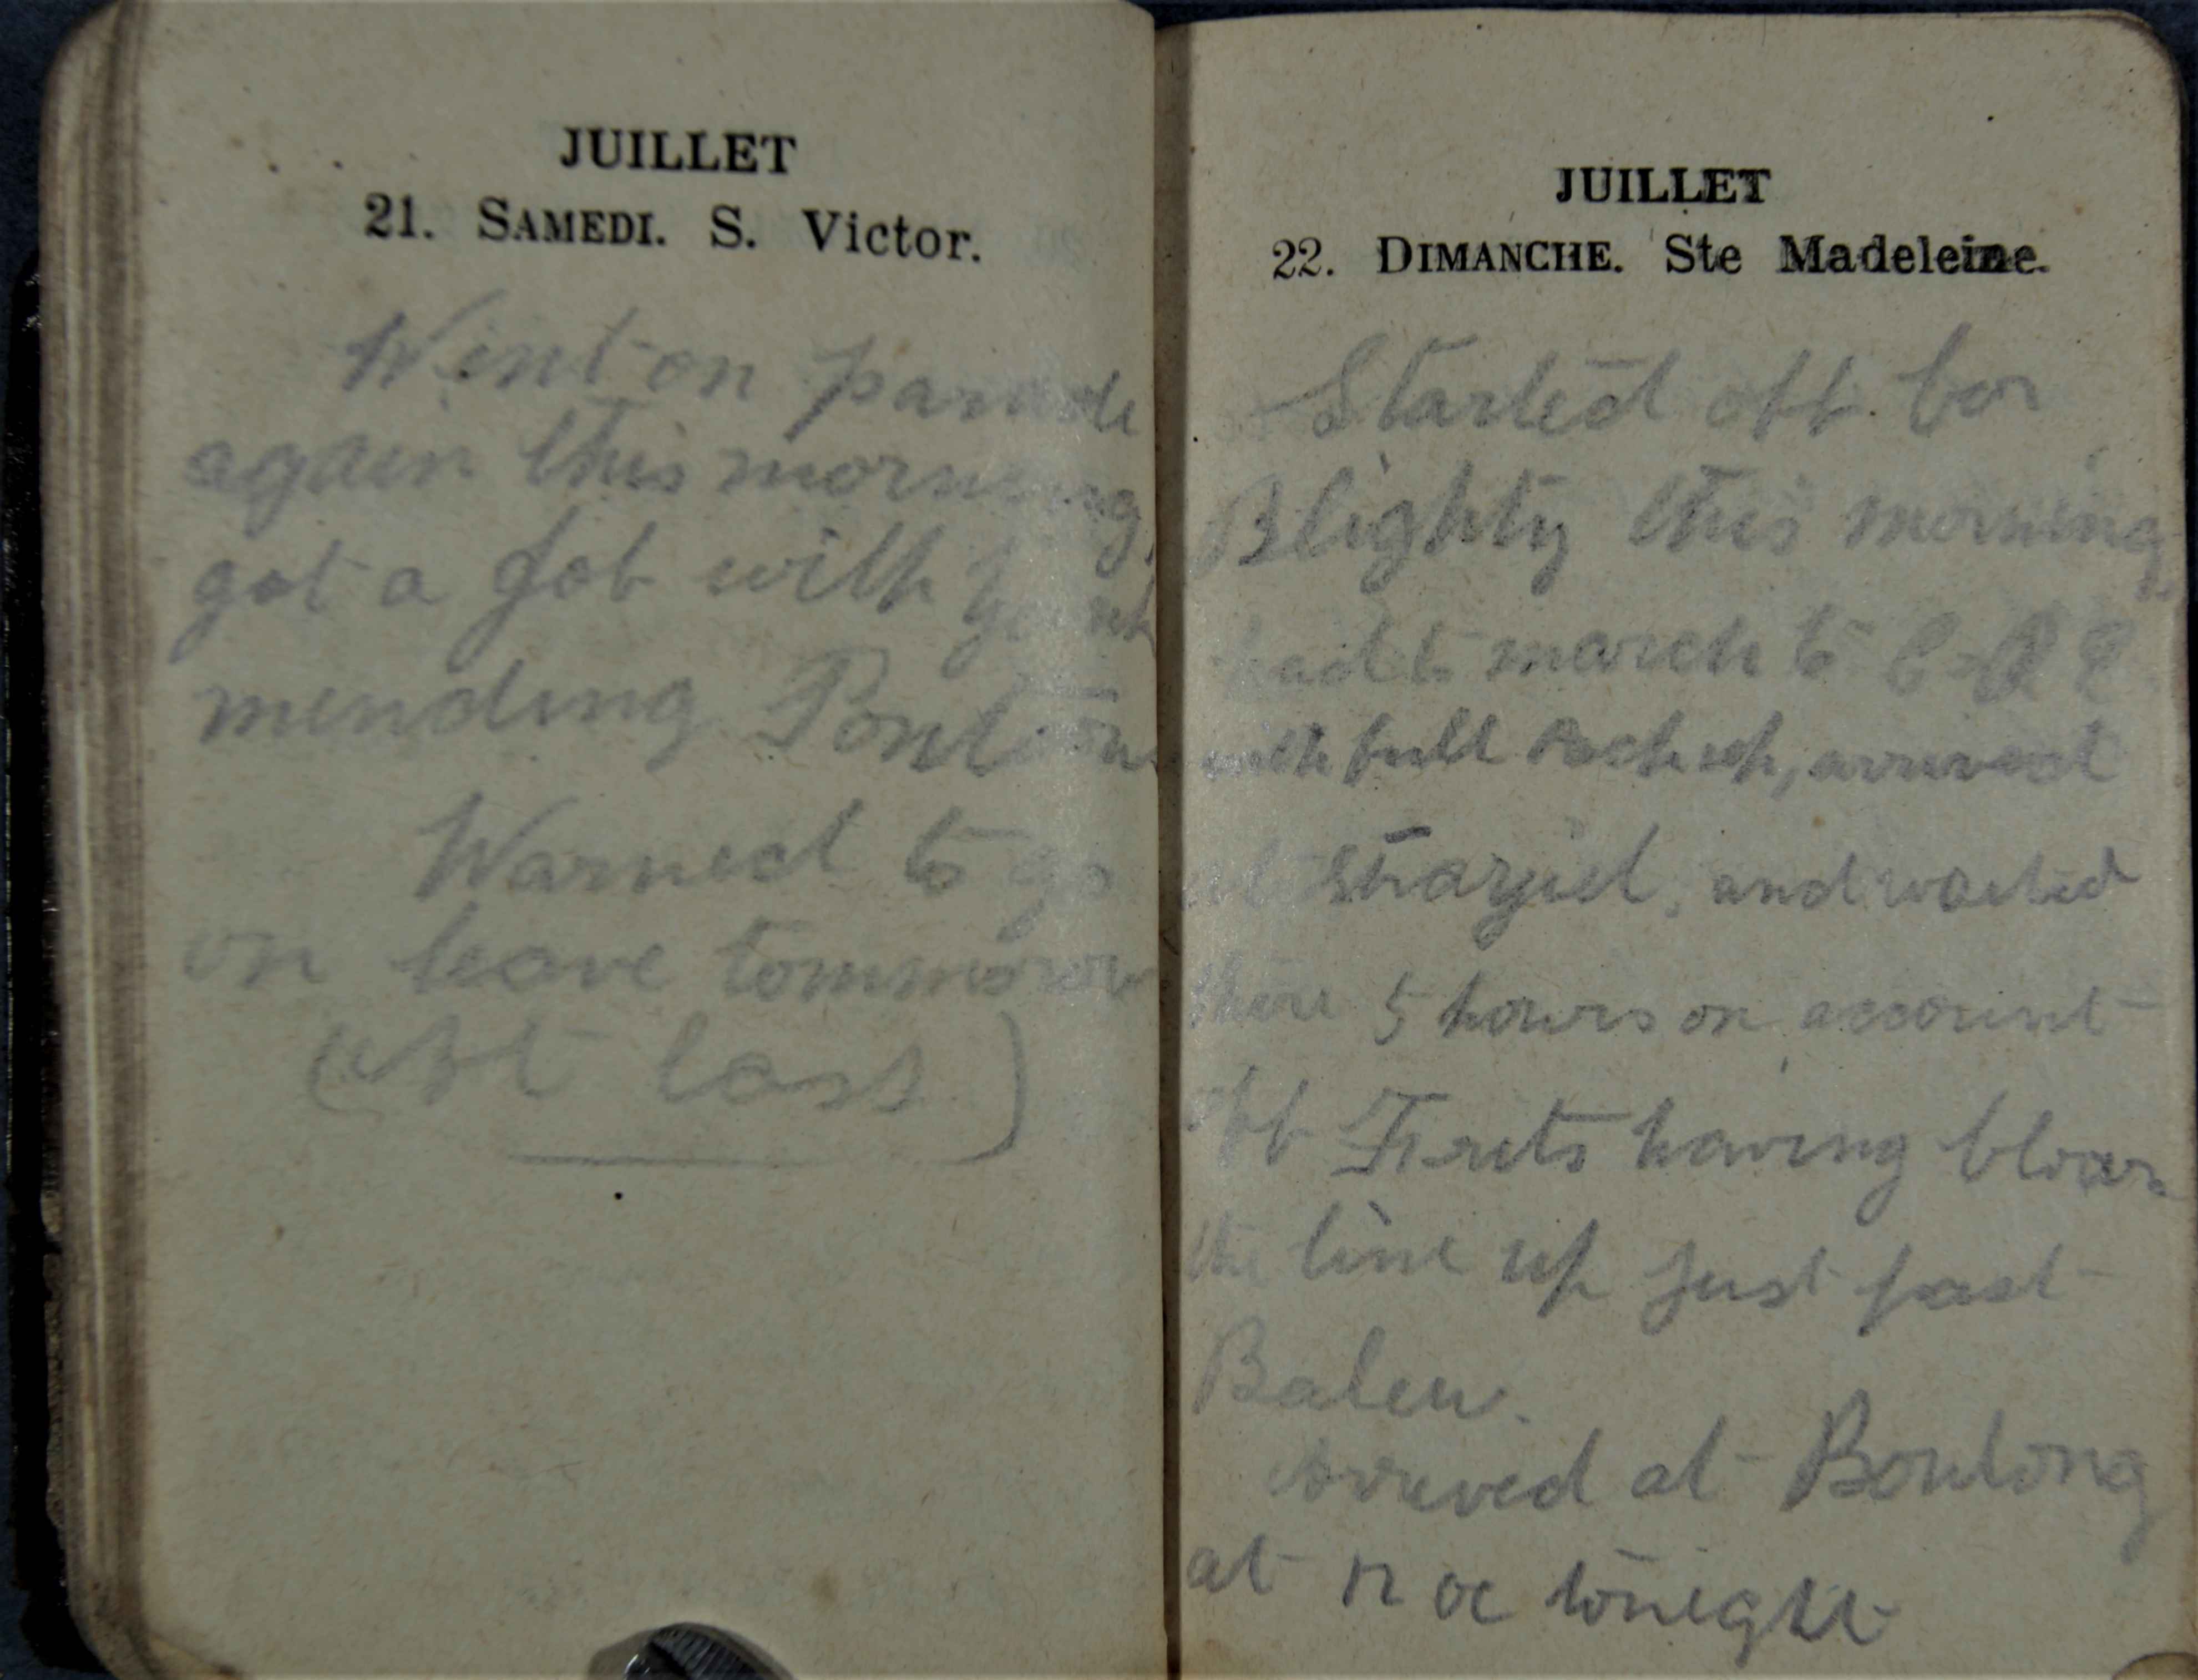 JUILLET
21. SAMEDI. S. Victor.
Went on parade
again this morning,
got a Job with
mending Pontoon
Warned to go
on leave tommorow
(At last)
JUILLET
22. DIMANCHE. Ste Madeleine.
Started off for
Blighty this morning,
had to march to
with full Pack up, arrived
at and waited
there 5 hours on account
of Frits having blown
the line up just past
Baleu.
Arrived at Boulong
at 12 oc tonight